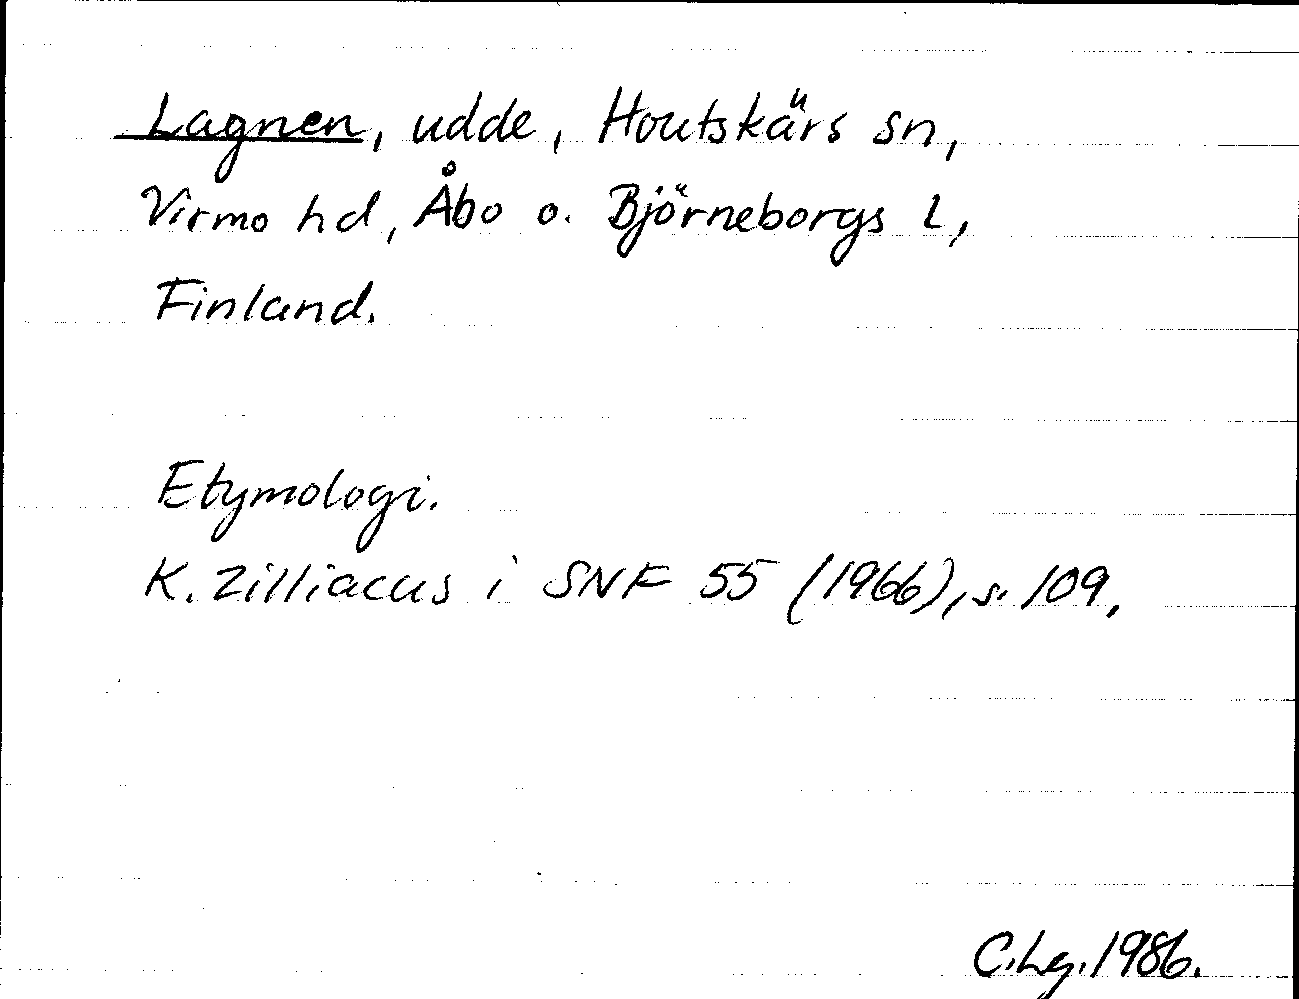 Lagnen, udde, Houtskärs sn,
Virmo hd, Åbo o. Björneborgs l,
Finland.
Etymologi.
K. Zilliacus i SNF 55 (1966), s. 109.
C.Lg. 1986.